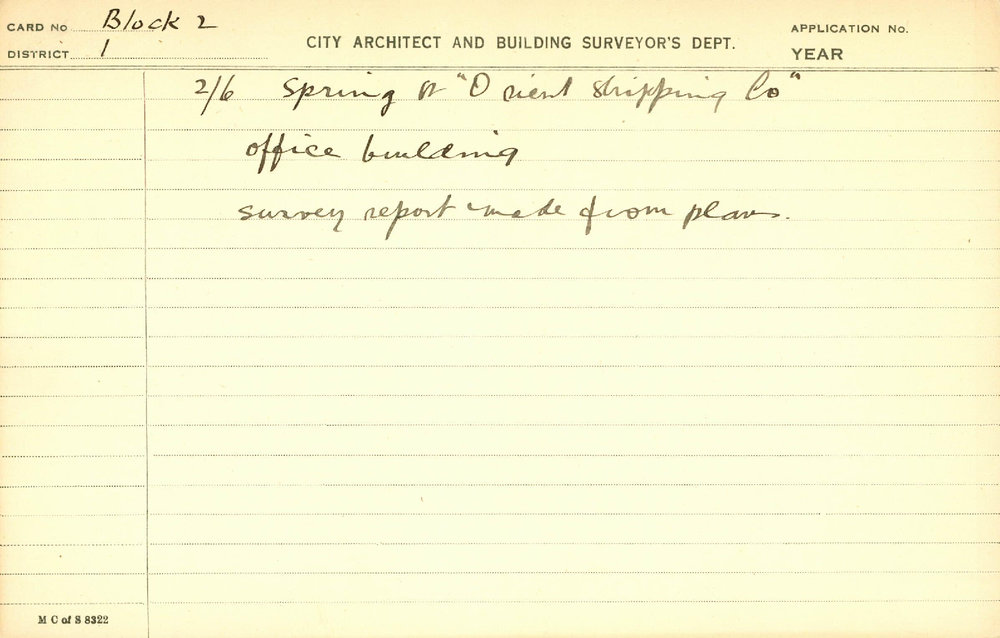 CARD No Block 2
DISTRICT 1
CITY ARCHITECT AND BUILDING SURVEYOR'S DEPT.
APPLICATION No.
YEAR
2/6 Spring St "Orient Shipping Co"
office building
survey report made from plans.
M C of S 8322